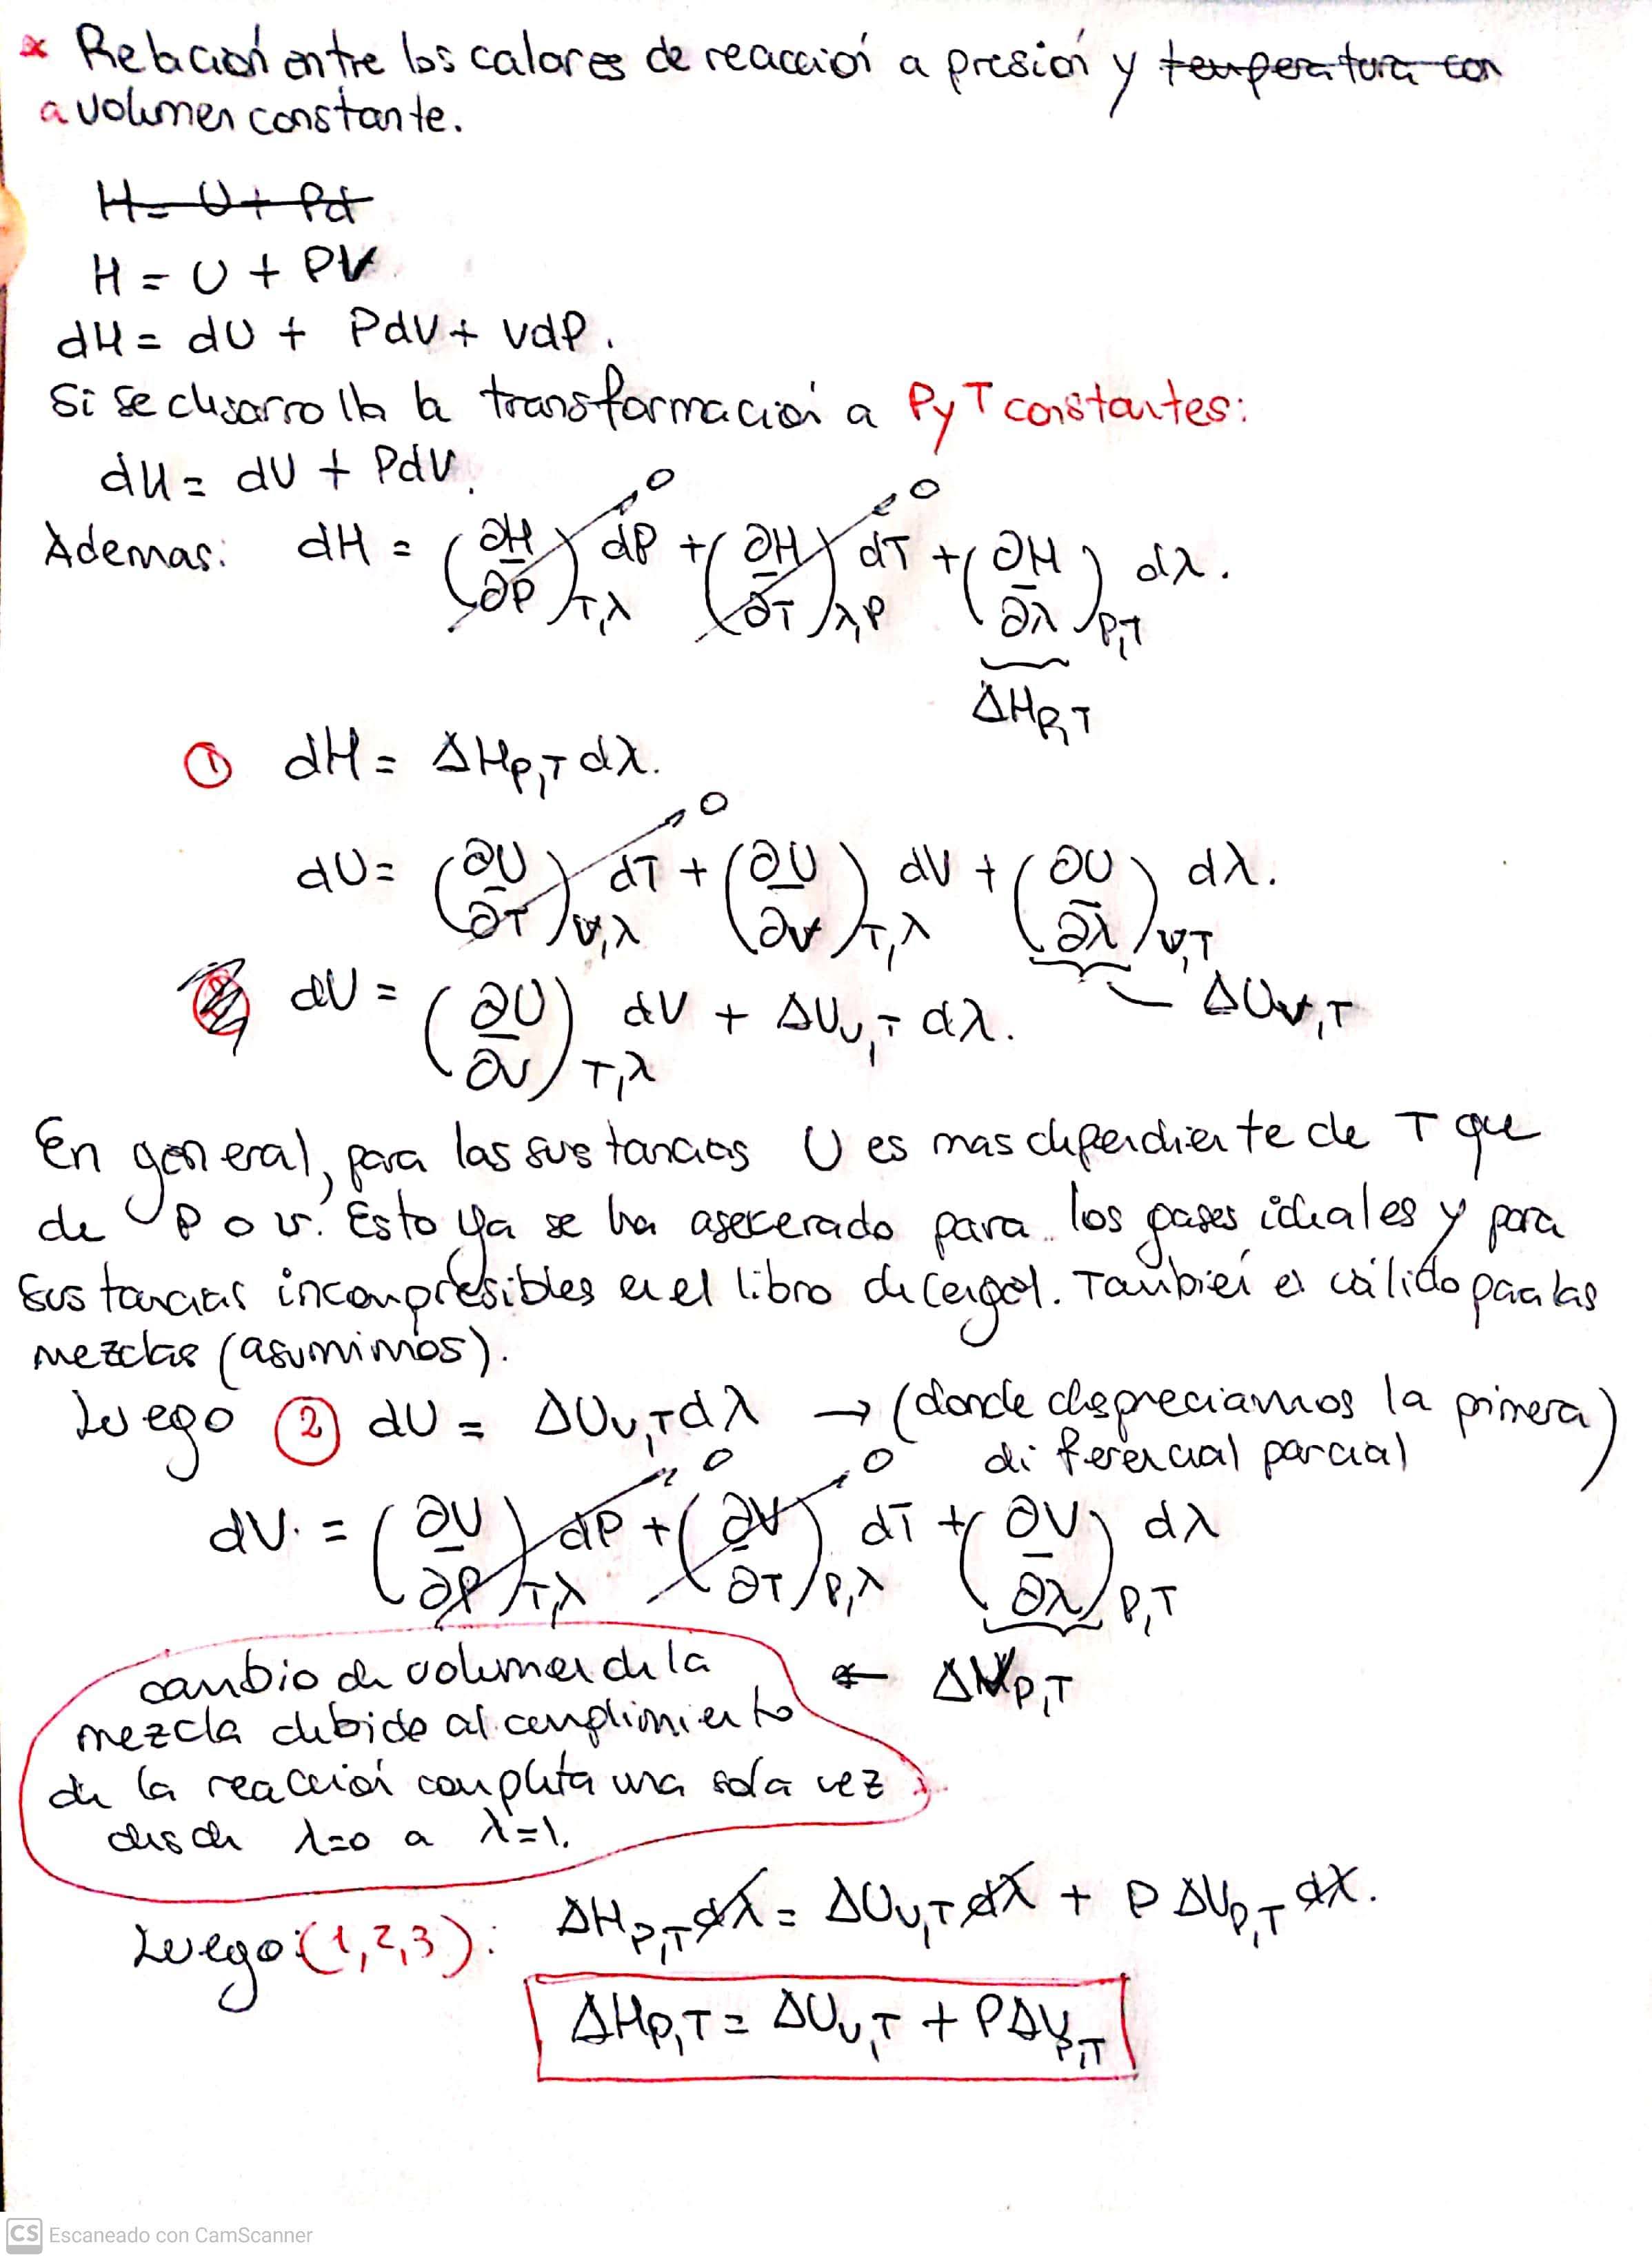 * Relación entre los calores de reacción a presión y temperatura con
a volumen constante.
H = U + Pd
H = U + PV
dH = dU + PdV + VdP.
Si se desarrolla la transformación a P y T constantes:
dH = dU + PdV.
Ademas: dH = (∂H/∂P)T,λ dP + (∂H/∂T)λ,P dT + (∂H/∂λ)P,T dλ.
0 0
ΔHP,T
① dH = ΔHP,T dλ.
0
dU = (∂U/∂T)V,λ dT + (∂U/∂V)T,λ dV + (∂U/∂λ)V,T dλ.
dU = (∂U/∂V)T,λ dV + ΔUV,T dλ. ΔUV,T
En general, para las sustancias U es mas dependiente de T que
de P o v. Esto ya se ha asecerado para los gases ideales y para
sustancias incompresibles en el libro de Cengel. También es válido para las
mezclas (asumimos).
Luego ② dU = ΔUV,T dλ → (donde despreciamos la primera
diferencial parcial)
0 0
dV = (∂V/∂P)T,λ dP + (∂V/∂T)P,λ dT + (∂V/∂λ)P,T dλ
cambio de volumen de la ← ΔVP,T
mezcla debido al cumplimiento
de la reacción completa una sola vez
desde λ=0 a λ=1.
Luego: (1,2,3): ΔHP,T dλ = ΔUV,T dλ + P ΔVP,T dλ.
ΔHP,T = ΔUV,T + PΔVP,T
CS Escaneado con CamScanner